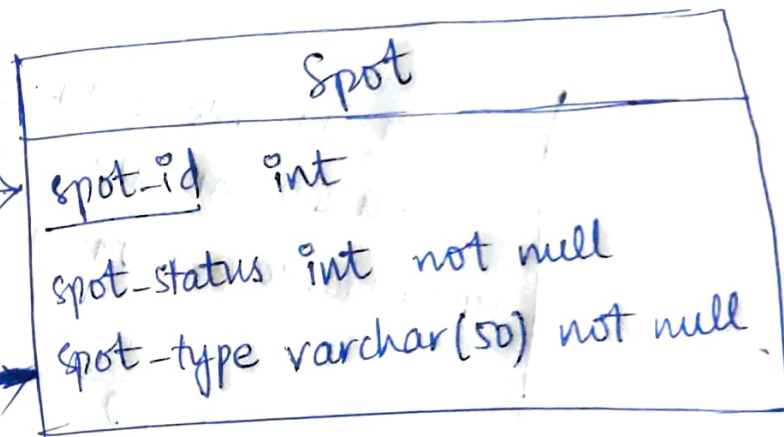 Spot
spot_id int
spot_status int not null
spot_type varchar(50) not null